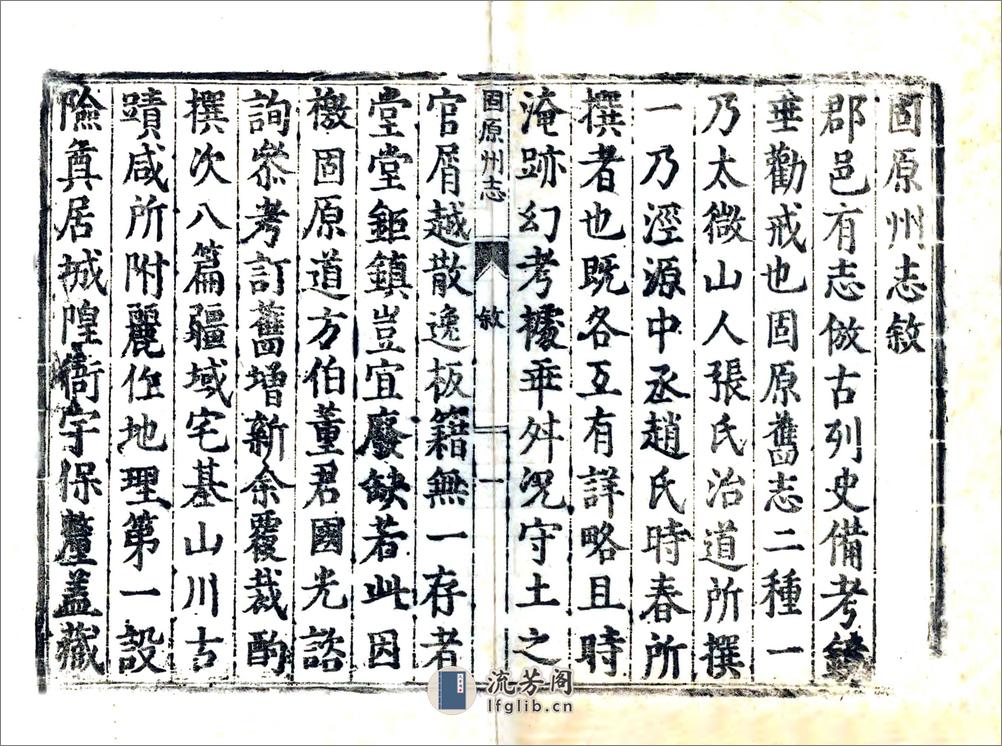 固原州志敘
郡邑有志倣古列史備考鏡
垂勸戒也固原舊志二種一
乃太微山人張氏治道所撰
一乃涇源中丞趙氏時春所
撰者也既各互有詳略且時
淹跡幻考據乖舛況守土之
固原州志 敘 一
官屑越散逸板籍無一存者
堂堂鉅鎮豈宜廢缺若此因
檄固原道方伯董君國光諮
詢叅考訂舊增新余覆裁酌
撰次八篇疆域宅基山川古
蹟咸所附麗作地理第一設
險奠居城隍衙宇保釐蓋藏
流芳阁
lfglib.cn